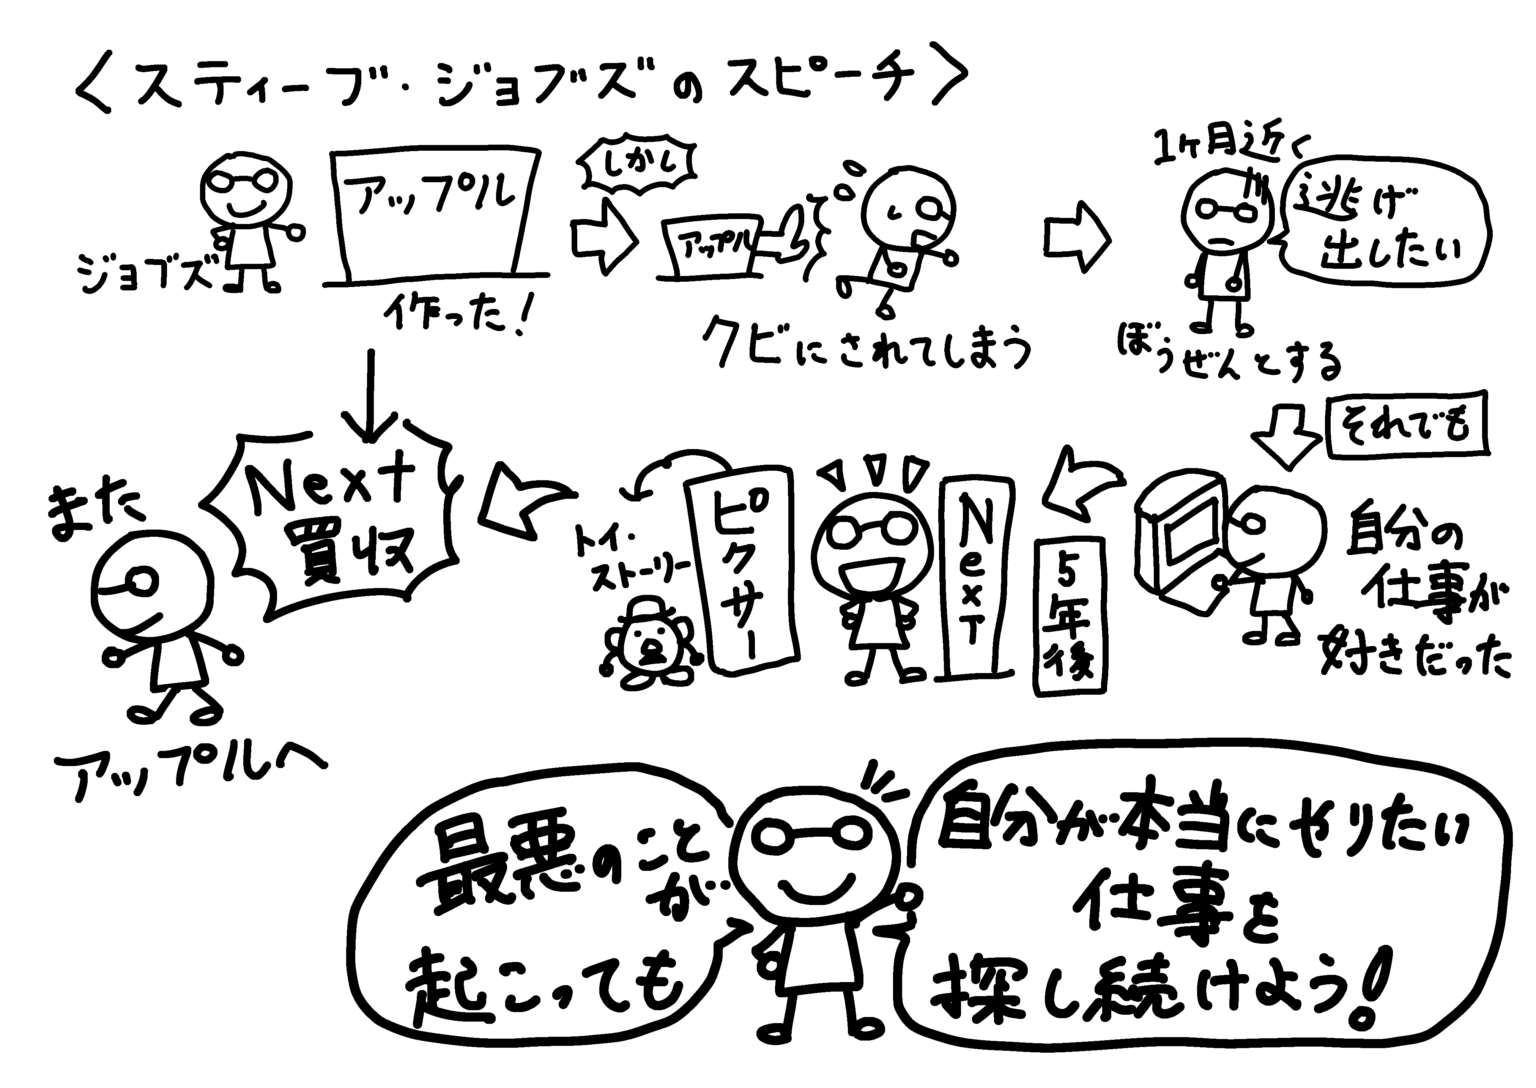 ＜スティーブ・ジョブズのスピーチ＞
ジョブズ
アップル
作った！
しかし
アップル
クビにされてしまう
1ヶ月近く
逃げ
出したい
ぼうぜんとする
それでも
自分の
仕事が
好きだった
5年後
NexT
ピクサー
トイ・
ストーリー
Next
買収
また
アップルへ
最悪のこと
が
起こっても
自分が本当にやりたい
仕事を
探し続けよう！